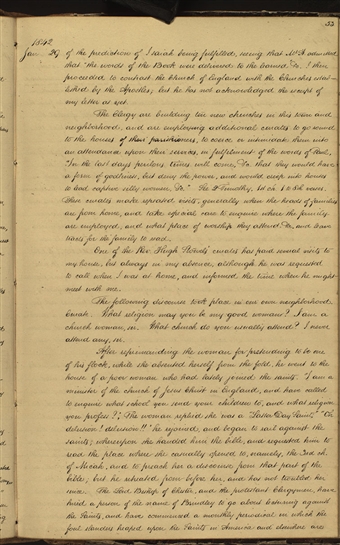 53
1842
Jan. 29 of the prediction of Isaiah being fulfilled, seeing that Mr. S. admitted
that the words of the Book were delivered to the learned &c, I then
proceeded to contrast the Church of England with the Churches estab-
lished by the Apostles; but he has not acknowledged the receipt of
my letter as yet.
The Clergy are building ten new churches in this town and
neighborhood, and are employing additional curates to go round
to the houses of their parishioners, to coerce or intimidate them into
an attendance upon their services, in fulfilment of the words of Paul,
"In the last days perilous times will come, &c. that they would have
a form of godliness, but deny the power, and would creep into houses
to lead captive silly women, &c." See 2 Timothy, 3d ch. 1 to 6th verses.
These curates make repeated visits, generally when the heads of families
are from home, and take especial care to enquire where the family
are employed, and what place of worship they attend &c, and leave
tracts for the family to read.
One of the Rev. Hugh Stowel's curates has paid several visits to
my house, but always in my absence, although he was requested
to call when I was at home, and informed the time when he might
meet with me.
The following discourse took place in our own neighborhood.
Curate. What religion may you be my good woman? I am a
church woman, sir. What church do you usually attend? I never
attend any, sir.
After reprimanding the woman for pretending to be one
of his flock, while she absented herself from the fold, he went to the
house of a poor woman who had lately joined the saints. "I am a
minister of the church of Jesus Christ in England, and have called
to enquire what school you send your children to, and what religion
you profess?" The woman replied she was a "Latter Day Saint." "Oh
delusion! delusion!!" he rejoined, and began to rail against the
saints; whereupon she handed him the bible, and requested him to
read the place where she casually opened to, namely, the 3rd ch.
of Micah, and to preach her a discourse from that part of the
bible; but he retreated from before her, and has not troubled her
since. The Lord Bishop of Chester, and the protestant Clergymen, have
hired a person of the name of Brindley to go about lecturing against
the Saints, and have commenced a monthly periodical in which the
foul slanders heaped upon the Saints in America and elsewhere are